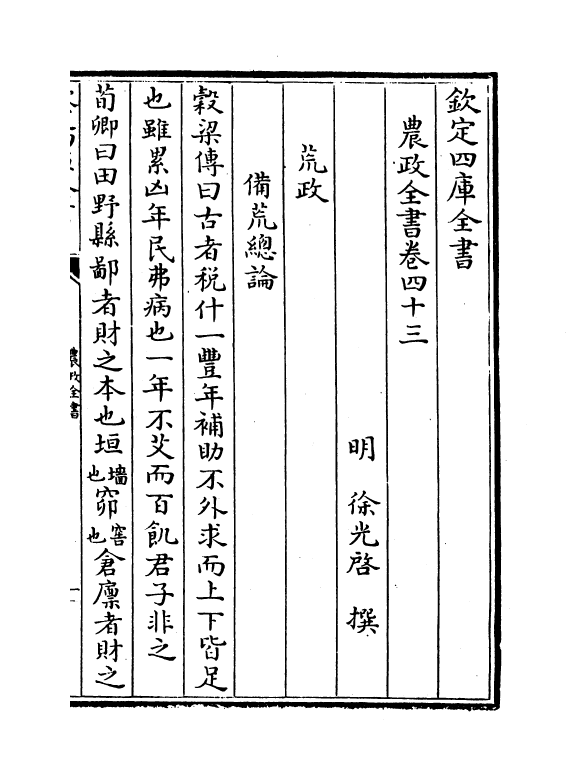 欽定四庫全書
農政全書卷四十三
明 徐光啓 撰
荒政
備荒總論
穀梁傳曰古者税什一豐年補助不外求而上下皆足
也雖累凶年民弗病也一年不艾而百飢君子非之
荀卿曰田野縣鄙者財之本也垣墻也窌窖也倉廩者財之
農政全書
一